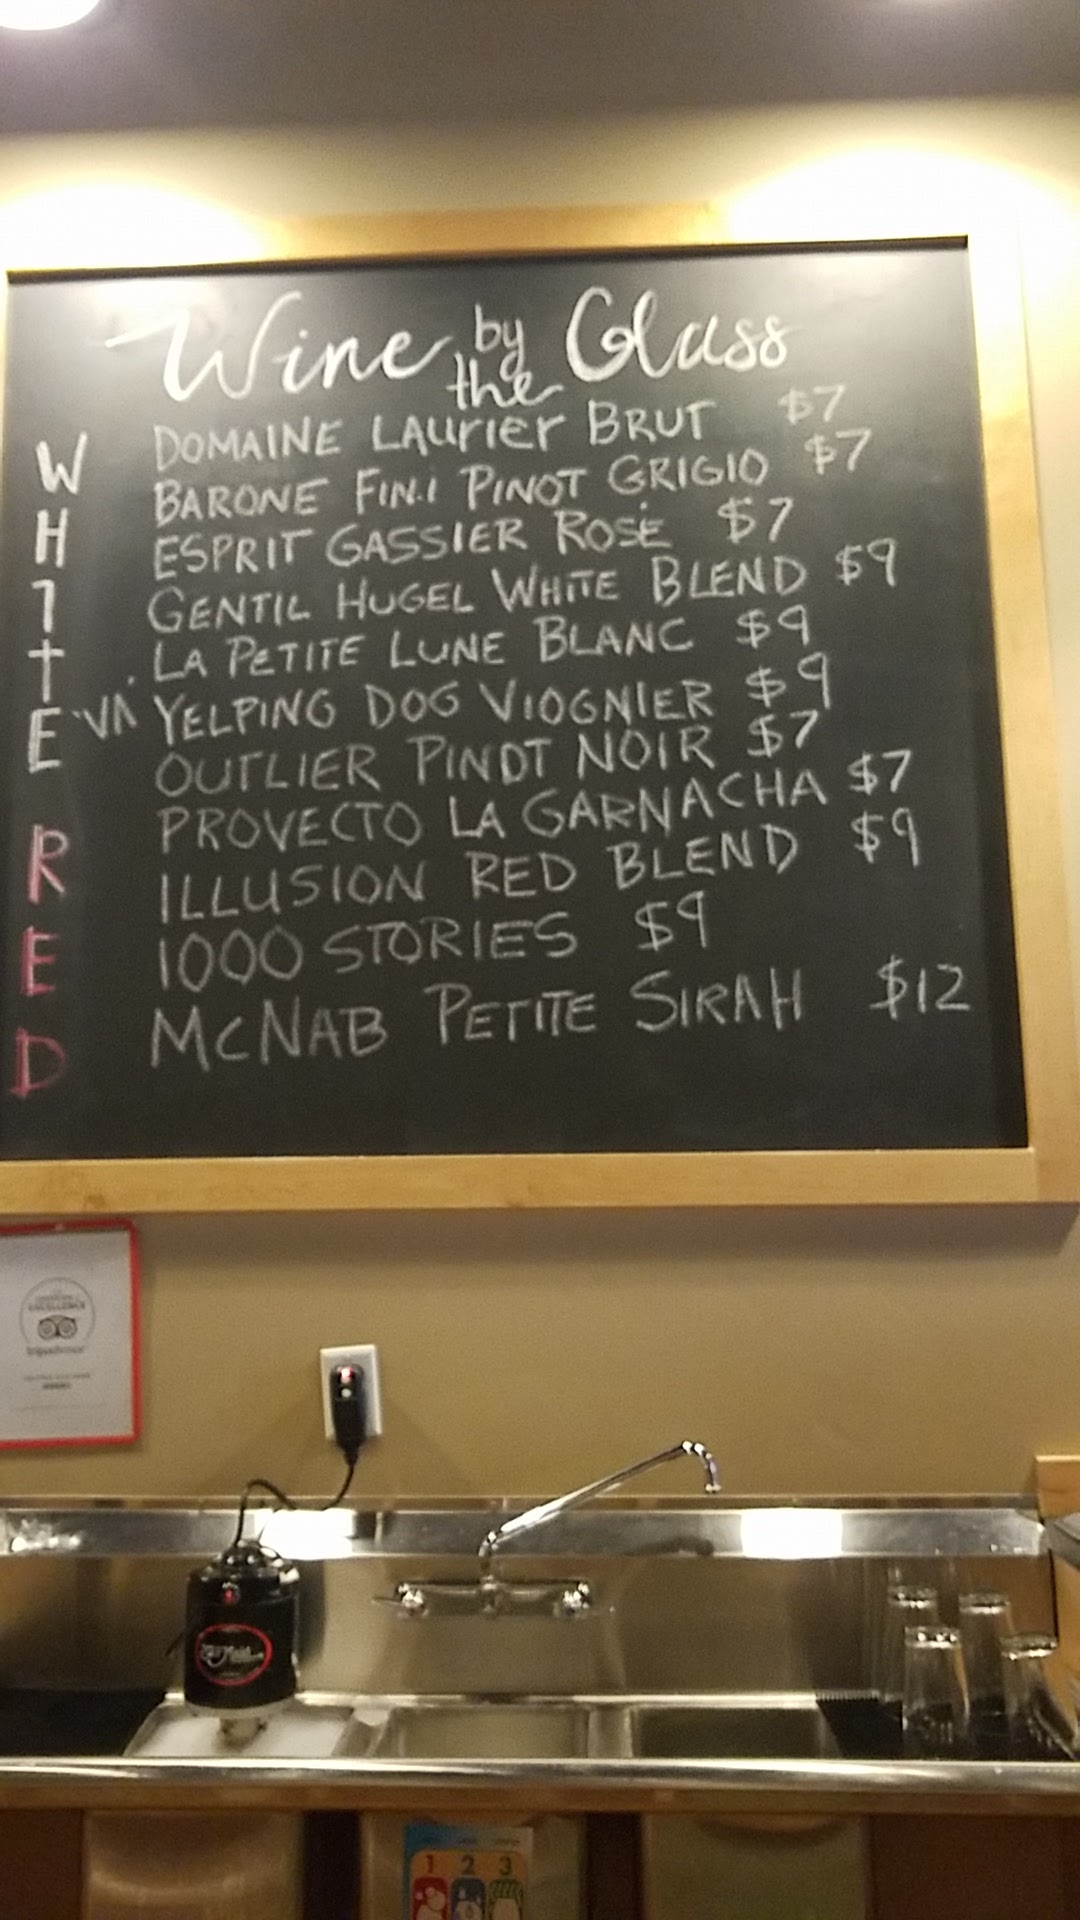 Wine by the Glass
WHITE
DOMAINE LAurier BRUT $7
BARONE FINI PINOT GRIGIO $7
ESPRIT GASSIER ROSÉ $7
GENTIL HUGEL WHITE BLEND $9
LA PETITE LUNE BLANC $9
VA YELPING DOG VIOGNIER $9
RED
OUTLIER PINOT NOIR $7
PROVECTO LA GARNACHA $7
ILLUSION RED BLEND $9
1000 STORIES $9
MCNAB PETITE SIRAH $12
EXCELLENCE
tripadvisor
1 2 3